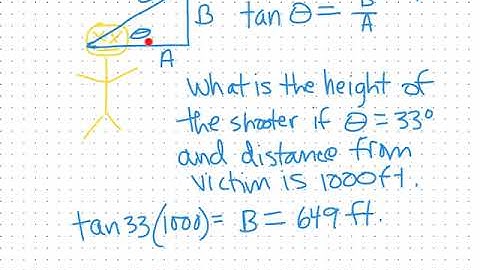 B tan θ = B/A
θ
A
What is the height of
the shooter if θ = 33°
and distance from
victim is 1000 ft.
tan 33 (1000) = B = 649 ft.